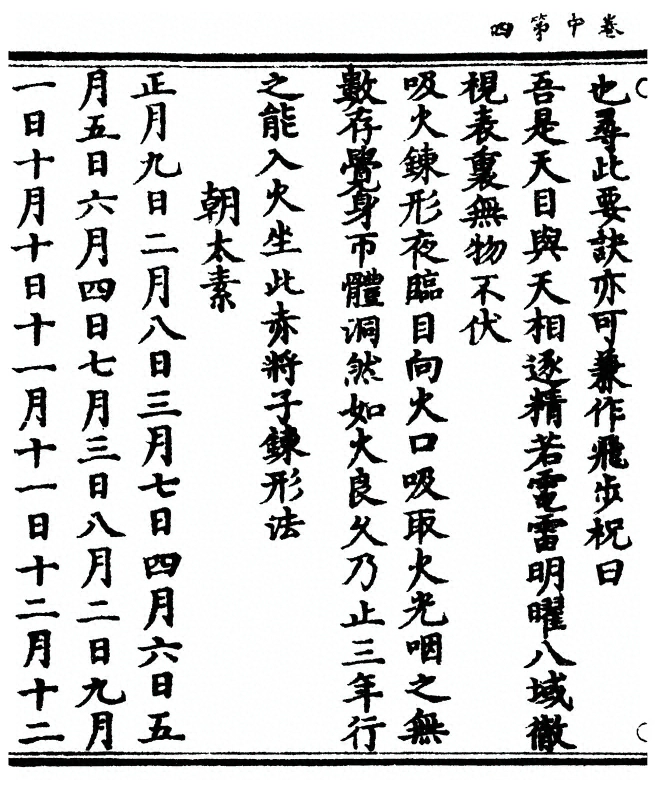 卷中第四
也尋此要訣亦可兼作飛步祝曰
吾是天目與天相逐精若電雷明曜八域徹
視表裏無物不伏
吸火鍊形夜臨目向火口吸取火光咽之無
數存覺身帀體洞然如火良久乃止三年行
之能入火坐此赤將子鍊形法
朝太素
正月九日二月八日三月七日四月六日五
月五日六月四日七月三日八月二日九月
一日十月十日十一月十一日十二月十二